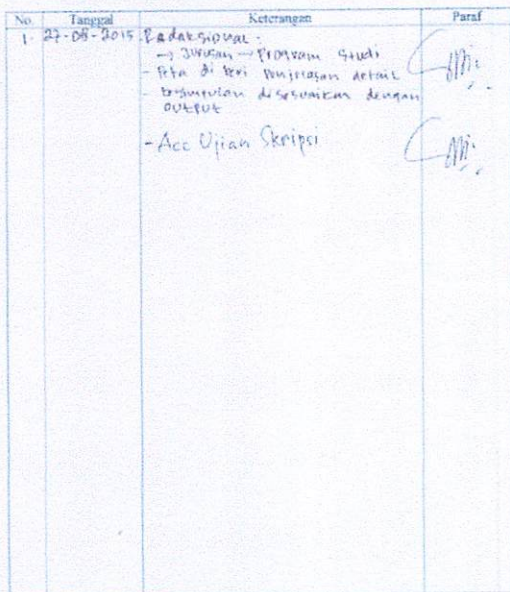 No. Tanggal Keterangan Paraf
1. 27-08-2015 Redaksional :
→ Jurusan → Program Studi
- Peta di beri penjelasan detail
- kesimpulan disesuaikan dengan
OUTPUT
- Acc Ujian Skripsi